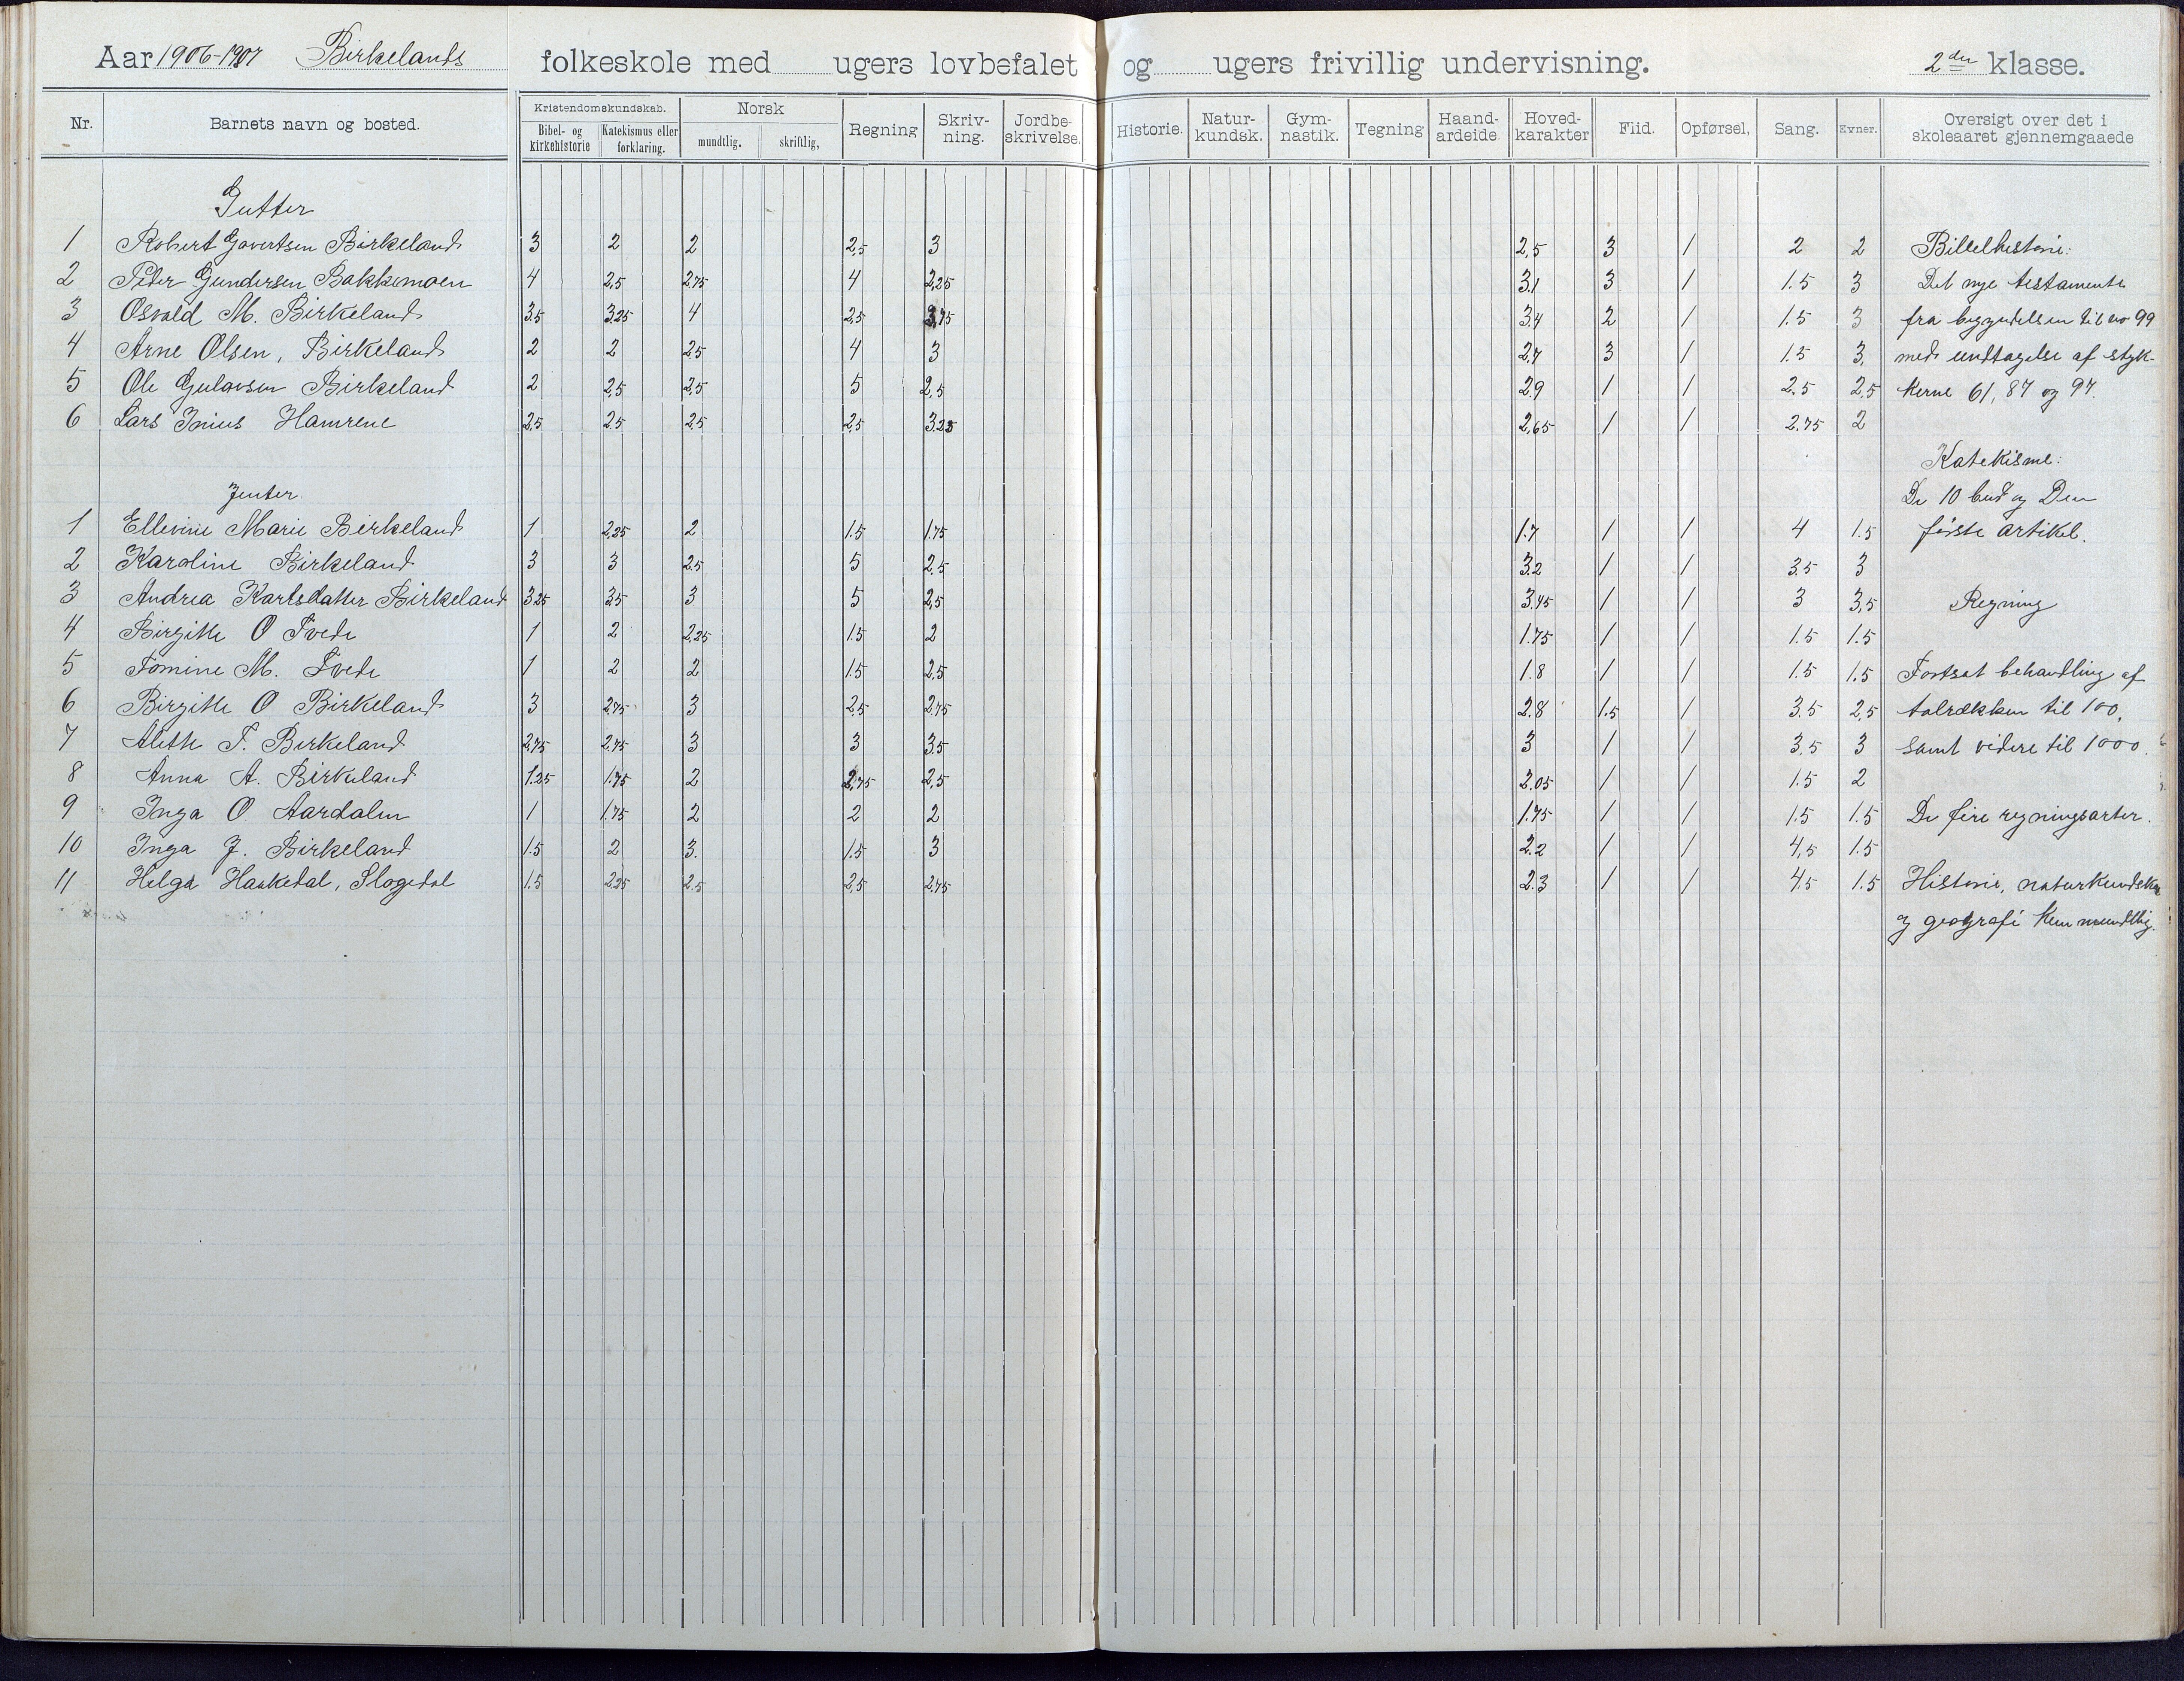 Aar 1906-1907 Birkelands folkeskole med ugers lovbefalet og ugers frivillig undervisning. 2den klasse.
Nr. Barnets navn og bosted. Kristendomskundskab. Bibel- og kirkehistorie Katekismus eller forklaring. Norsk mundtlig, skriftlig, Regning Skriv-ning. Jordbe-skrivelse. Historie. Natur-kundsk. Gym-nastik. Tegning Haand-ardeide. Hoved-karakter Flid. Opførsel, Sang. Evner. Oversigt over det i skoleaaret gjennemgaaede
Gutter
1 Robert Govertsen Birkeland 3 2 2 2,5 3 2,5 3 1 2 2 Bibelhistorie:
2 Peder Gundersen Bakkemoen 4 2,5 2,75 4 2,25 3.1 3 1 1.5 3 Det nye testamente
3 Osvald M. Birkeland 3.5 3,25 4 2,5 3,75 3.4 2 1 1.5 3 fra begyndelsen til no 99
4 Arne Olsen, Birkeland 2 2 2,5 4 3 2,7 3 1 1.5 3 med undtagelse af styk-
5 Ole Gulavsen Birkeland 2 2,5 2,5 5 2,5 2.9 1 1 2,5 2,5 kerne 61, 87 og 97.
6 Lars Inius Hamrene 2,5 2.5 2.5 2,5 3.25 2,65 1 1 2.75 2
Katekisme:
Jenter. De 10 bud og Den
1 Ellevine Marie Birkeland 1 2,25 2 1.5 1.75 1.7 1 1 4 1.5 første artikel.
2 Karoline Birkeland 3 3 2.5 5 2.5 3.2 1 1 3.5 3
3 Andrea Karlsdatter Birkeland 3,25 3.5 3 5 2,5 3.45 1 1 3 3,5 Regning
4 Birgitte O Tvede 1 2 2,25 1.5 2 1.75 1 1 1.5 1.5
5 Tomine M. Tvede 1 2 2 1.5 2,5 1.8 1 1 1.5 1.5 Fortsat behandling af
6 Birgitte O Birkeland 3 2,75 3 2,5 2,75 2.8 1.5 1 3.5 2,5 talrækken til 100,
7 Alette T. Birkeland 2,75 2,75 3 3 3.5 3 1 1 3.5 3 samt videre til 1000.
8 Anna A. Birkeland 1.25 1.75 2 2,75 2,5 2.05 1 1 1.5 2
9 Inga O. Aardalen 1 1.75 2 2 2 1.75 1 1 1.5 1.5 De fire regningsarter.
10 Inga J. Birkeland 1.5 2 3. 1.5 3 2.2 1 1 4,5 1.5
11 Helga Haukedal, Slogedal 1.5 2,25 2.5 2,5 2,75 2.3 1 1 4.5 1.5 Historie, naturkundskab
og geografi kun mundtlig.